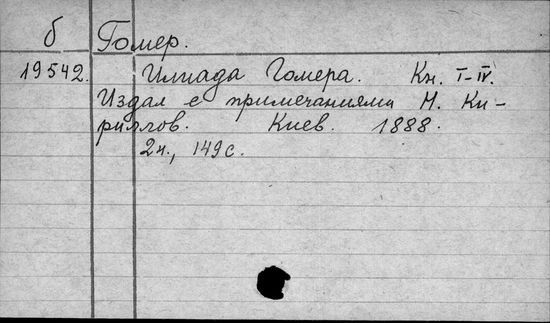 б Гомер.
19542. Илиада Гомера. Кн. I-IV.
Издал с примечаниями Н. Ки-
риллов. Киев. 1888.
2н., 149с.